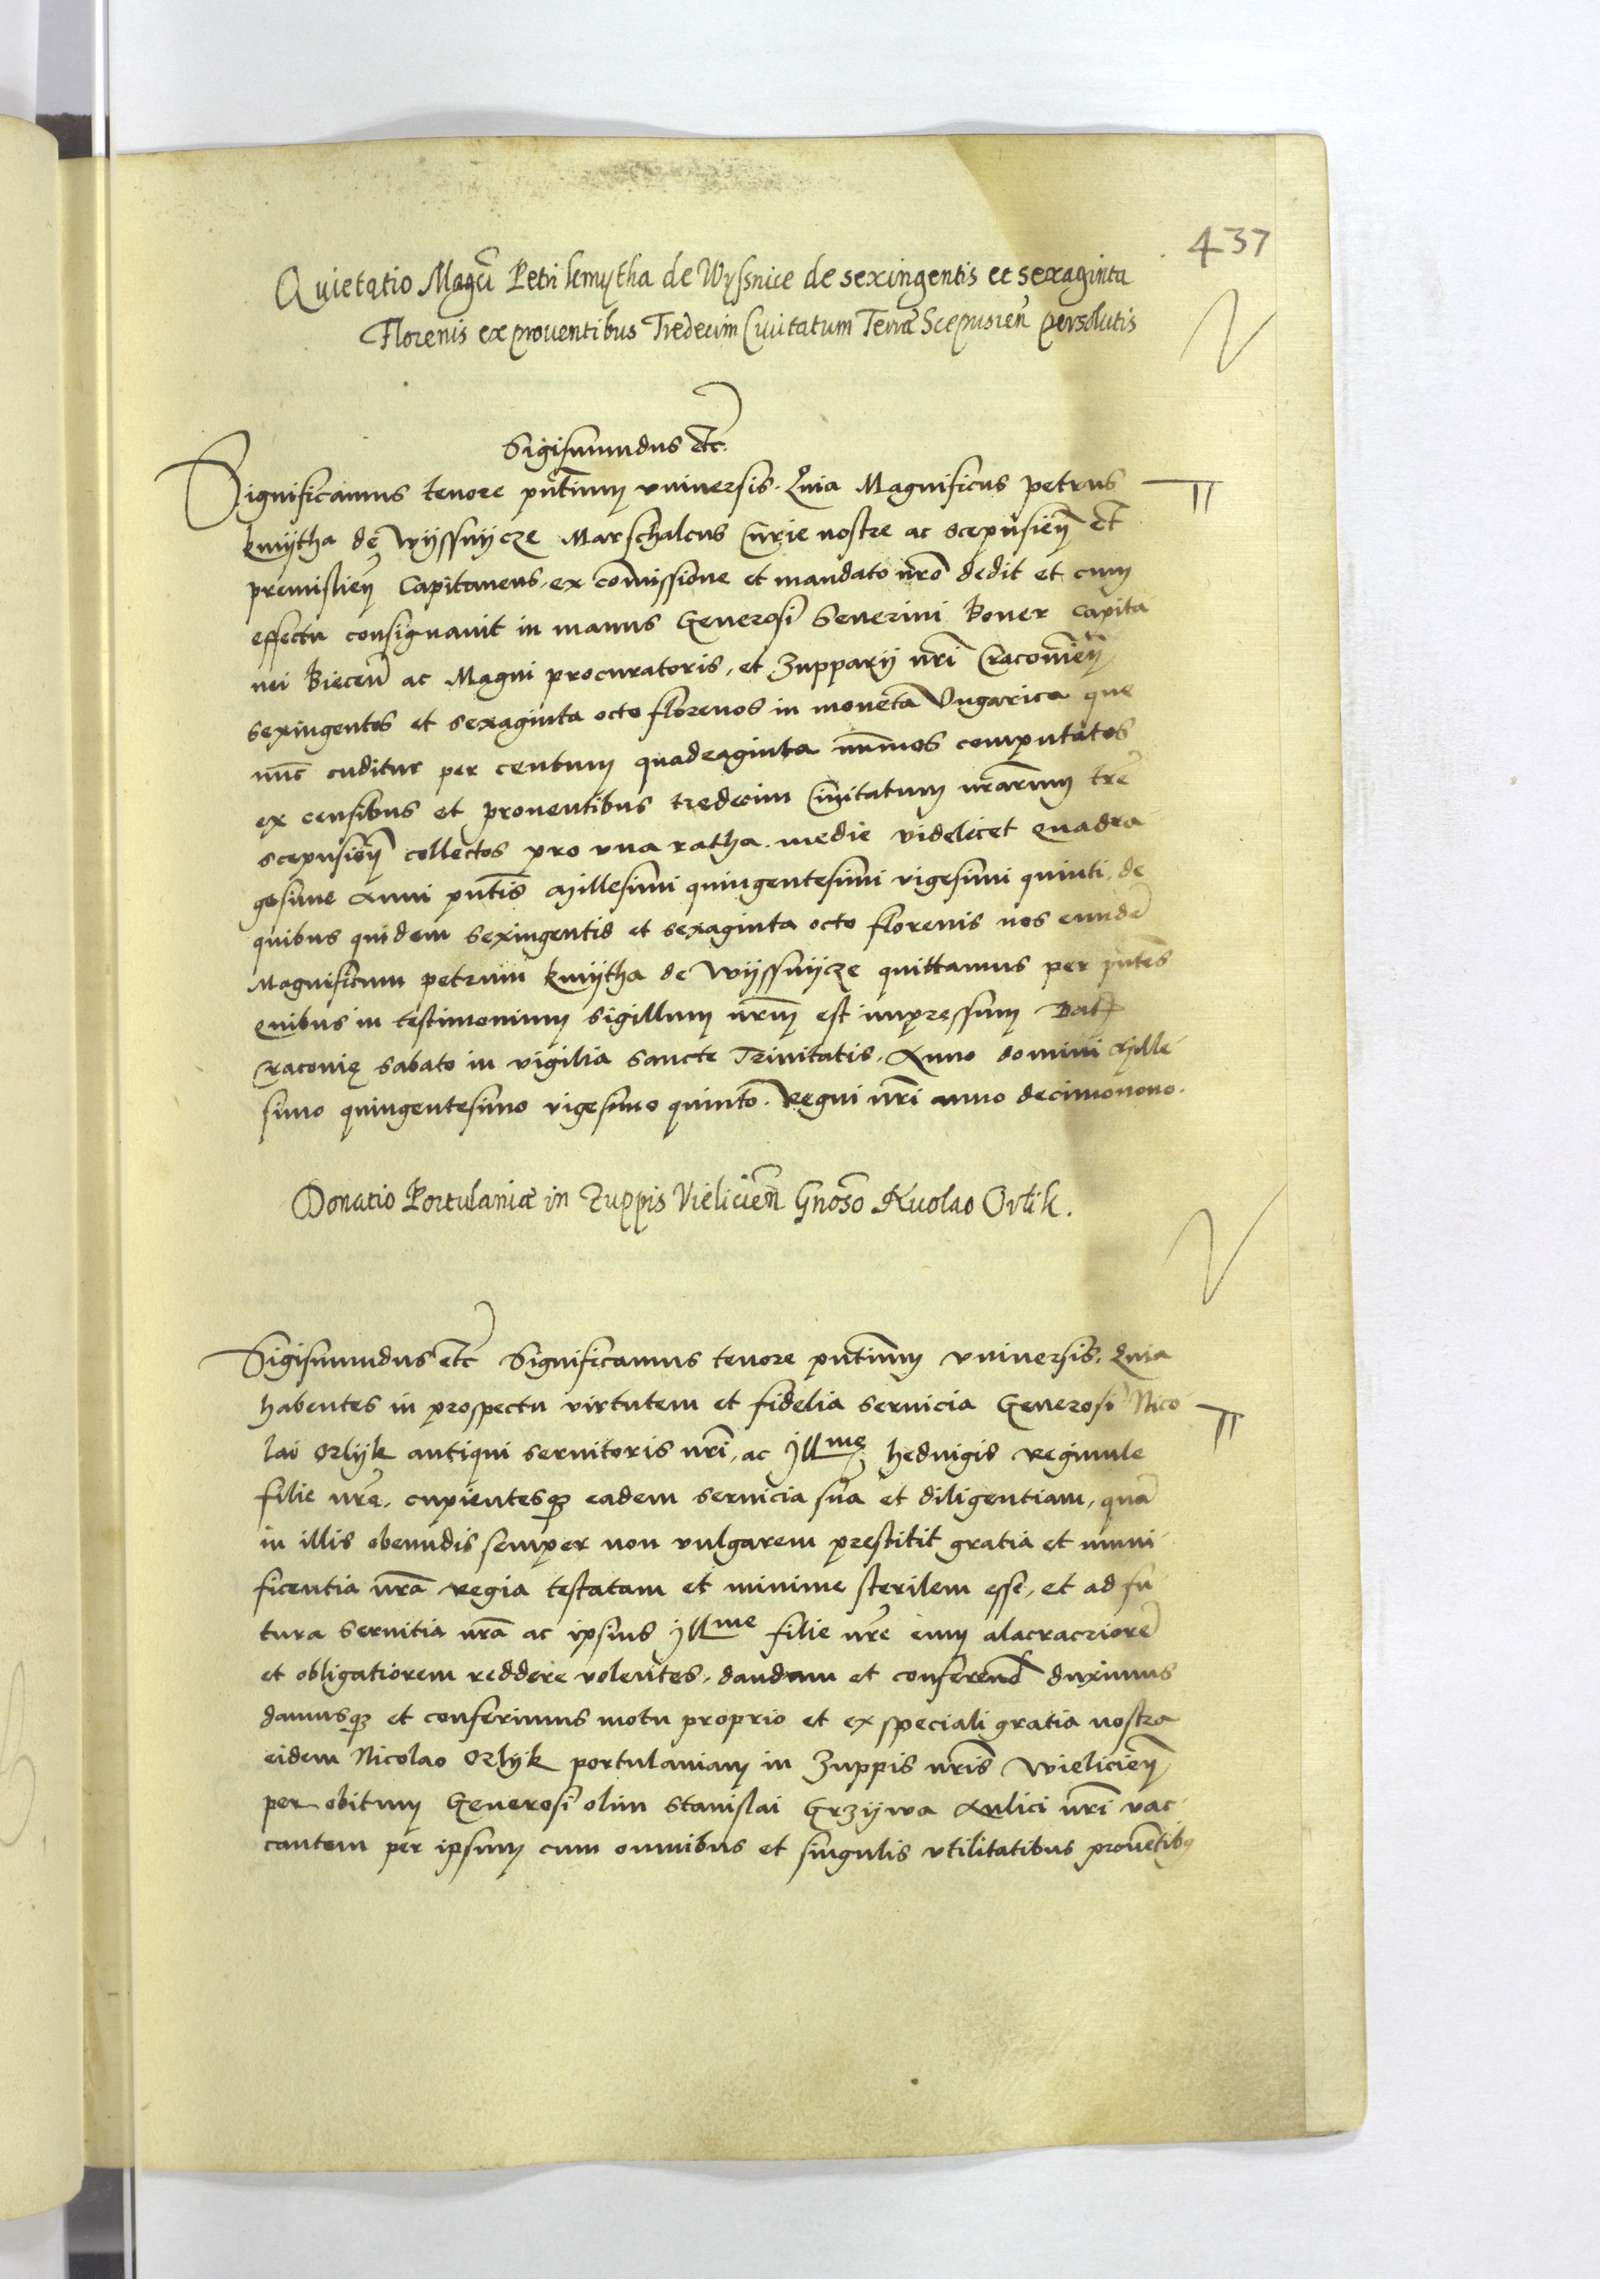 437
Quietatio Magci Petri kmytha de Wyssnice de sexingentis et sexaginta
Florenis ex prouentibus Tredecim Ciuitatum Terræ Scepusien persolutis
Sigismundus etc.
Significamus tenore pntium vniuersis. Quia Magnificus petrus
kmÿtha de WÿssnÿcZe Marschalcus Curie nostre ac scepusien et
premislien Capitaneus, ex commissione et mandato nro dedit et cum
effectu consignauit in manus Generosi Seuerini Boner Capita
nei Biecen ac Magni procuratoris, et Zupparij nri Cracouien
sexingentos et sexaginta octo florenos in moneta Vngarica que
nunc cuditur per centum quadraginta nummos computatos
ex censibus et prouentibus tredecim Ciuitatum nrarum tre
scepusien collectos pro vna ratha medie videlicet quadra
gesime Anni pntis Millesimi quingentesimi vigesimi quinti, de
quibus quidem sexingentis et sexaginta octo florenis nos eunde
Magnificum petrum kmÿtha de WÿssnÿcZe quittamus per pntes
quibus in testimonium sigillum nrm est impressum Dat
Cracouię sabato in vigilia sancte Trinitatis, Anno domini Mille
simo quingentesimo vigesimo quinto. Regni nri anno decimonono.
Donatio Portulaniæ in Zuppis Vielicien Gnoso Nicolao Orlik.
Sigismundus etc Significamus tenore pntium vniuersis. Quia
habentes in prospectu virtutem et fidelia seruicia Generosi Nico
lai Orlÿk antiqui seruitoris nri, ac Jllme heduigis Reginule
filie nre, cupientesq eadem seruicia sua et diligentiam, qua
in illis obeundis semper non vulgarem prestitit gratia et muni
ficentia nra regia testatam et minime sterilem esse, et ad fu
tura seruitia nra ac ipsius Jllme filie nre eum alacracriore
et obligatiorem reddere volentes, dandam et conferend duximus
damusq et conferimus motu proprio et ex speciali gratia nostra
eidem Nicolao Orlÿk portulaniam in Zuppis nris Wielicien
per obitum Generosi olim Stanislai Grzÿwa Aulici nri vac
cantem per ipsum cum omnibus et singulis vtilitatibus prouentibq